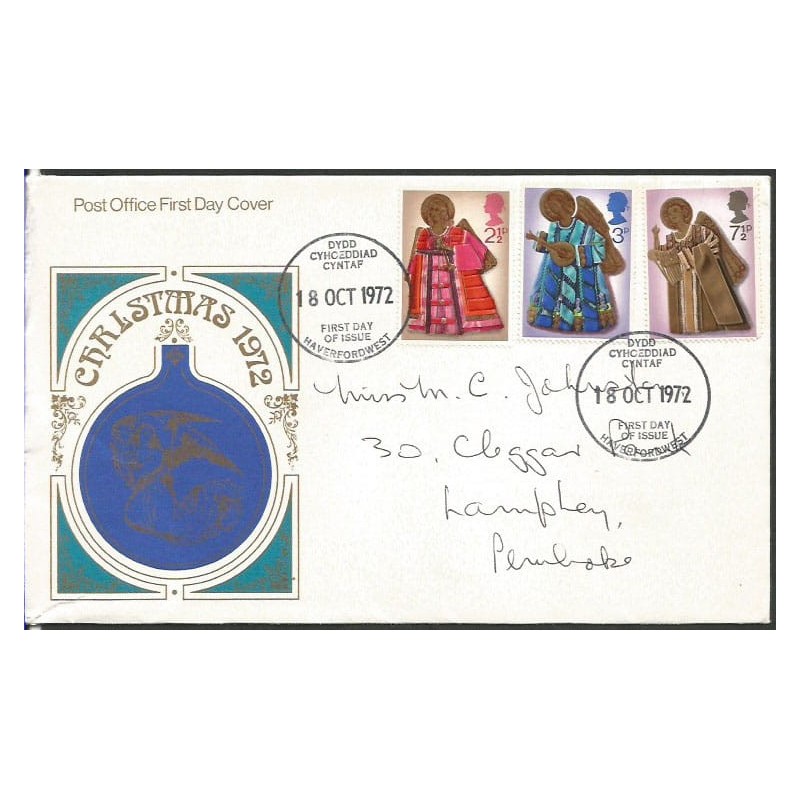 Post Office First Day Cover
CHRISTMAS 1972
2½P
3P
7½P
DYDD
CYHOEDDIAD
CYNTAF
18 OCT 1972
FIRST DAY
OF ISSUE
HAVERFORDWEST
DYDD
CYHOEDDIAD
CYNTAF
18 OCT 1972
FIRST DAY
OF ISSUE
HAVERFORDWEST
Miss M. C. Johnston
30, Cleggar
Lamphey,
Pembroke